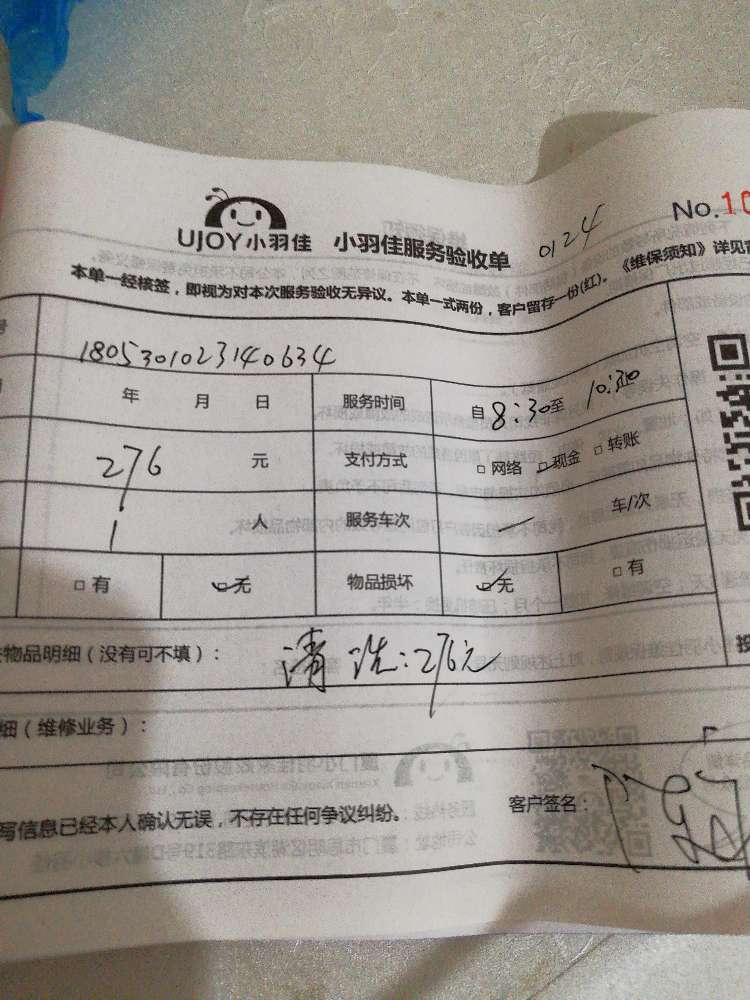 No.10
UJOY小羽佳 小羽佳服务验收单 0124
本单一经核签，即视为对本次服务验收无异议。本单一式两份，客户留存一份(红)。《维保须知》详见背
号 1805301023140634
年 月 日 服务时间 自8:30至10:30
276 元 支付方式 □网络 ☑现金 □转账
1 人 服务车次 车/次
□有 ☑无 物品损坏 ☑无 □有
物品明细（没有可不填）： 清洗:276元
细（维修业务）：
写信息已经本人确认无误，不存在任何争议纠纷。 客户签名：